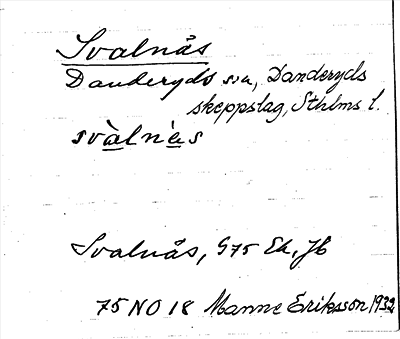 Svalnäs
Danderyds sn, Danderyds
skeppslag, Sthlms l.
svàlnἐs
Svalnås, G75 Ek, Jb
75 NO 18 Manne Eriksson 1932